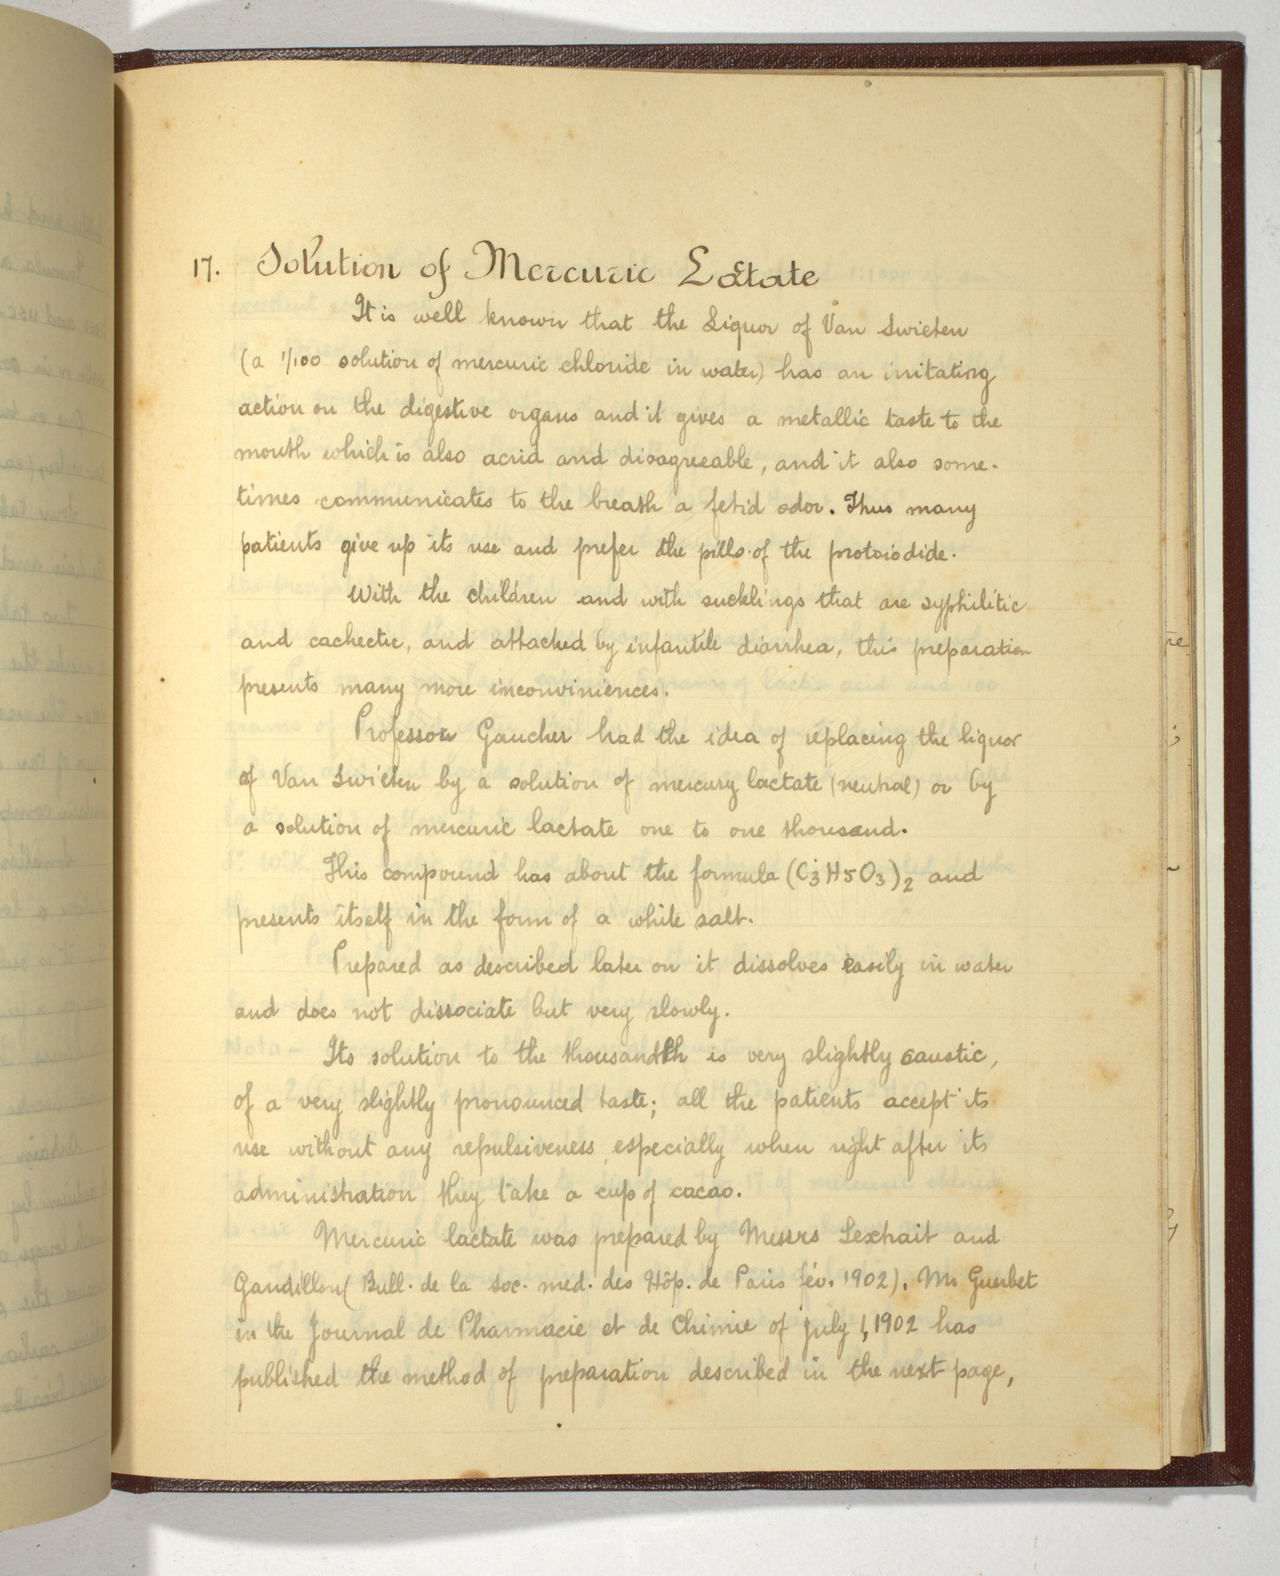 17. Solution of Mercuric Lactate
It is well known that the Liquor of Van Swieten
(a 1/100 solution of mercuric chloride in water) has an irritating
action on the digestive organs and it gives a metallic taste to the
mouth which is also acrid and disagreeable, and it also some-
times communicates to the breath a fetid odor. Thus many
patients give up its use and prefer the pills of the protoiodide.
With the children and with sucklings that are syphilitic
and cachectic, and attacked by infantile diarrhea, this preparation
presents many more inconviniences.
Professor Gaucher had the idea of replacing the liquor
of Van Swieten by a solution of mercury lactate (neutral) or by
a solution of mercuric lactate one to one thousand.
This compound has about the formula (C3H5O3)2 and
presents itself in the form of a white salt.
Prepared as described later on it dissolves easily in water
and does not dissociate but very slowly.
Its solution to the thousandth is very slightly caustic,
of a very slightly pronounced taste; all the patients accept its
use without any repulsiveness, especially when right after its
administration they take a cup of cacao.
Mercuric lactate was prepared by Messrs Lextrait and
Gaudillon (Bull. de la soc. med. des Hôp. de Paris fév. 1902). Mr Guerbet
in the Journal de Pharmacie et de Chimie of july 1, 1902 has
published the method of preparation described in the next page,